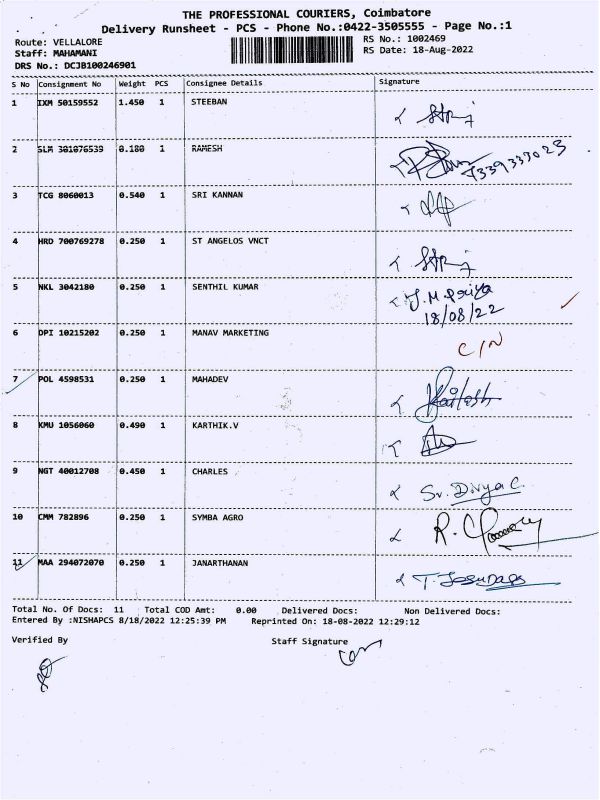 THE PROFESSIONAL COURIERS, Coimbatore
Delivery Runsheet - PCS - Phone No.:0422-3505555 - Page No.:1
Route: VELLALORE
RS No.: 1002469
Staff: MAHAMANI
RS Date: 18-Aug-2022
DRS No.: DCJB100246901
S No Consignment No Weight PCS Consignee Details Signature
1 IXM 50159552 1.450 1 STEEBAN
2 SLM 301076539 0.180 1 RAMESH 7339333023
3 TCG 8060013 0.540 1 SRI KANNAN
4 HRD 700769278 0.250 1 ST ANGELOS VNCT
5 NKL 3042180 0.250 1 SENTHIL KUMAR J.M Priya
18/08/22
6 DPI 10215202 0.250 1 MANAV MARKETING C/N
7 POL 4598531 0.250 1 MAHADEV
8 KMU 1056060 0.490 1 KARTHIK.V
9 NGT 40012708 0.450 1 CHARLES Sr. Divya C.
10 CMM 782896 0.250 1 SYMBA AGRO
11 MAA 294072070 0.250 1 JANARTHANAN
Total No. Of Docs: 11 Total COD Amt: 0.00 Delivered Docs: Non Delivered Docs:
Entered By :NISHAPCS 8/18/2022 12:25:39 PM Reprinted On: 18-08-2022 12:29:12
Verified By Staff Signature